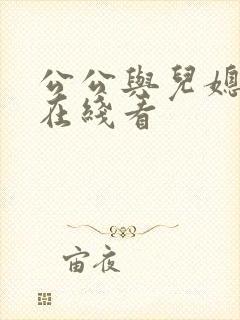 公公與兒媳
在綫看
宙夜